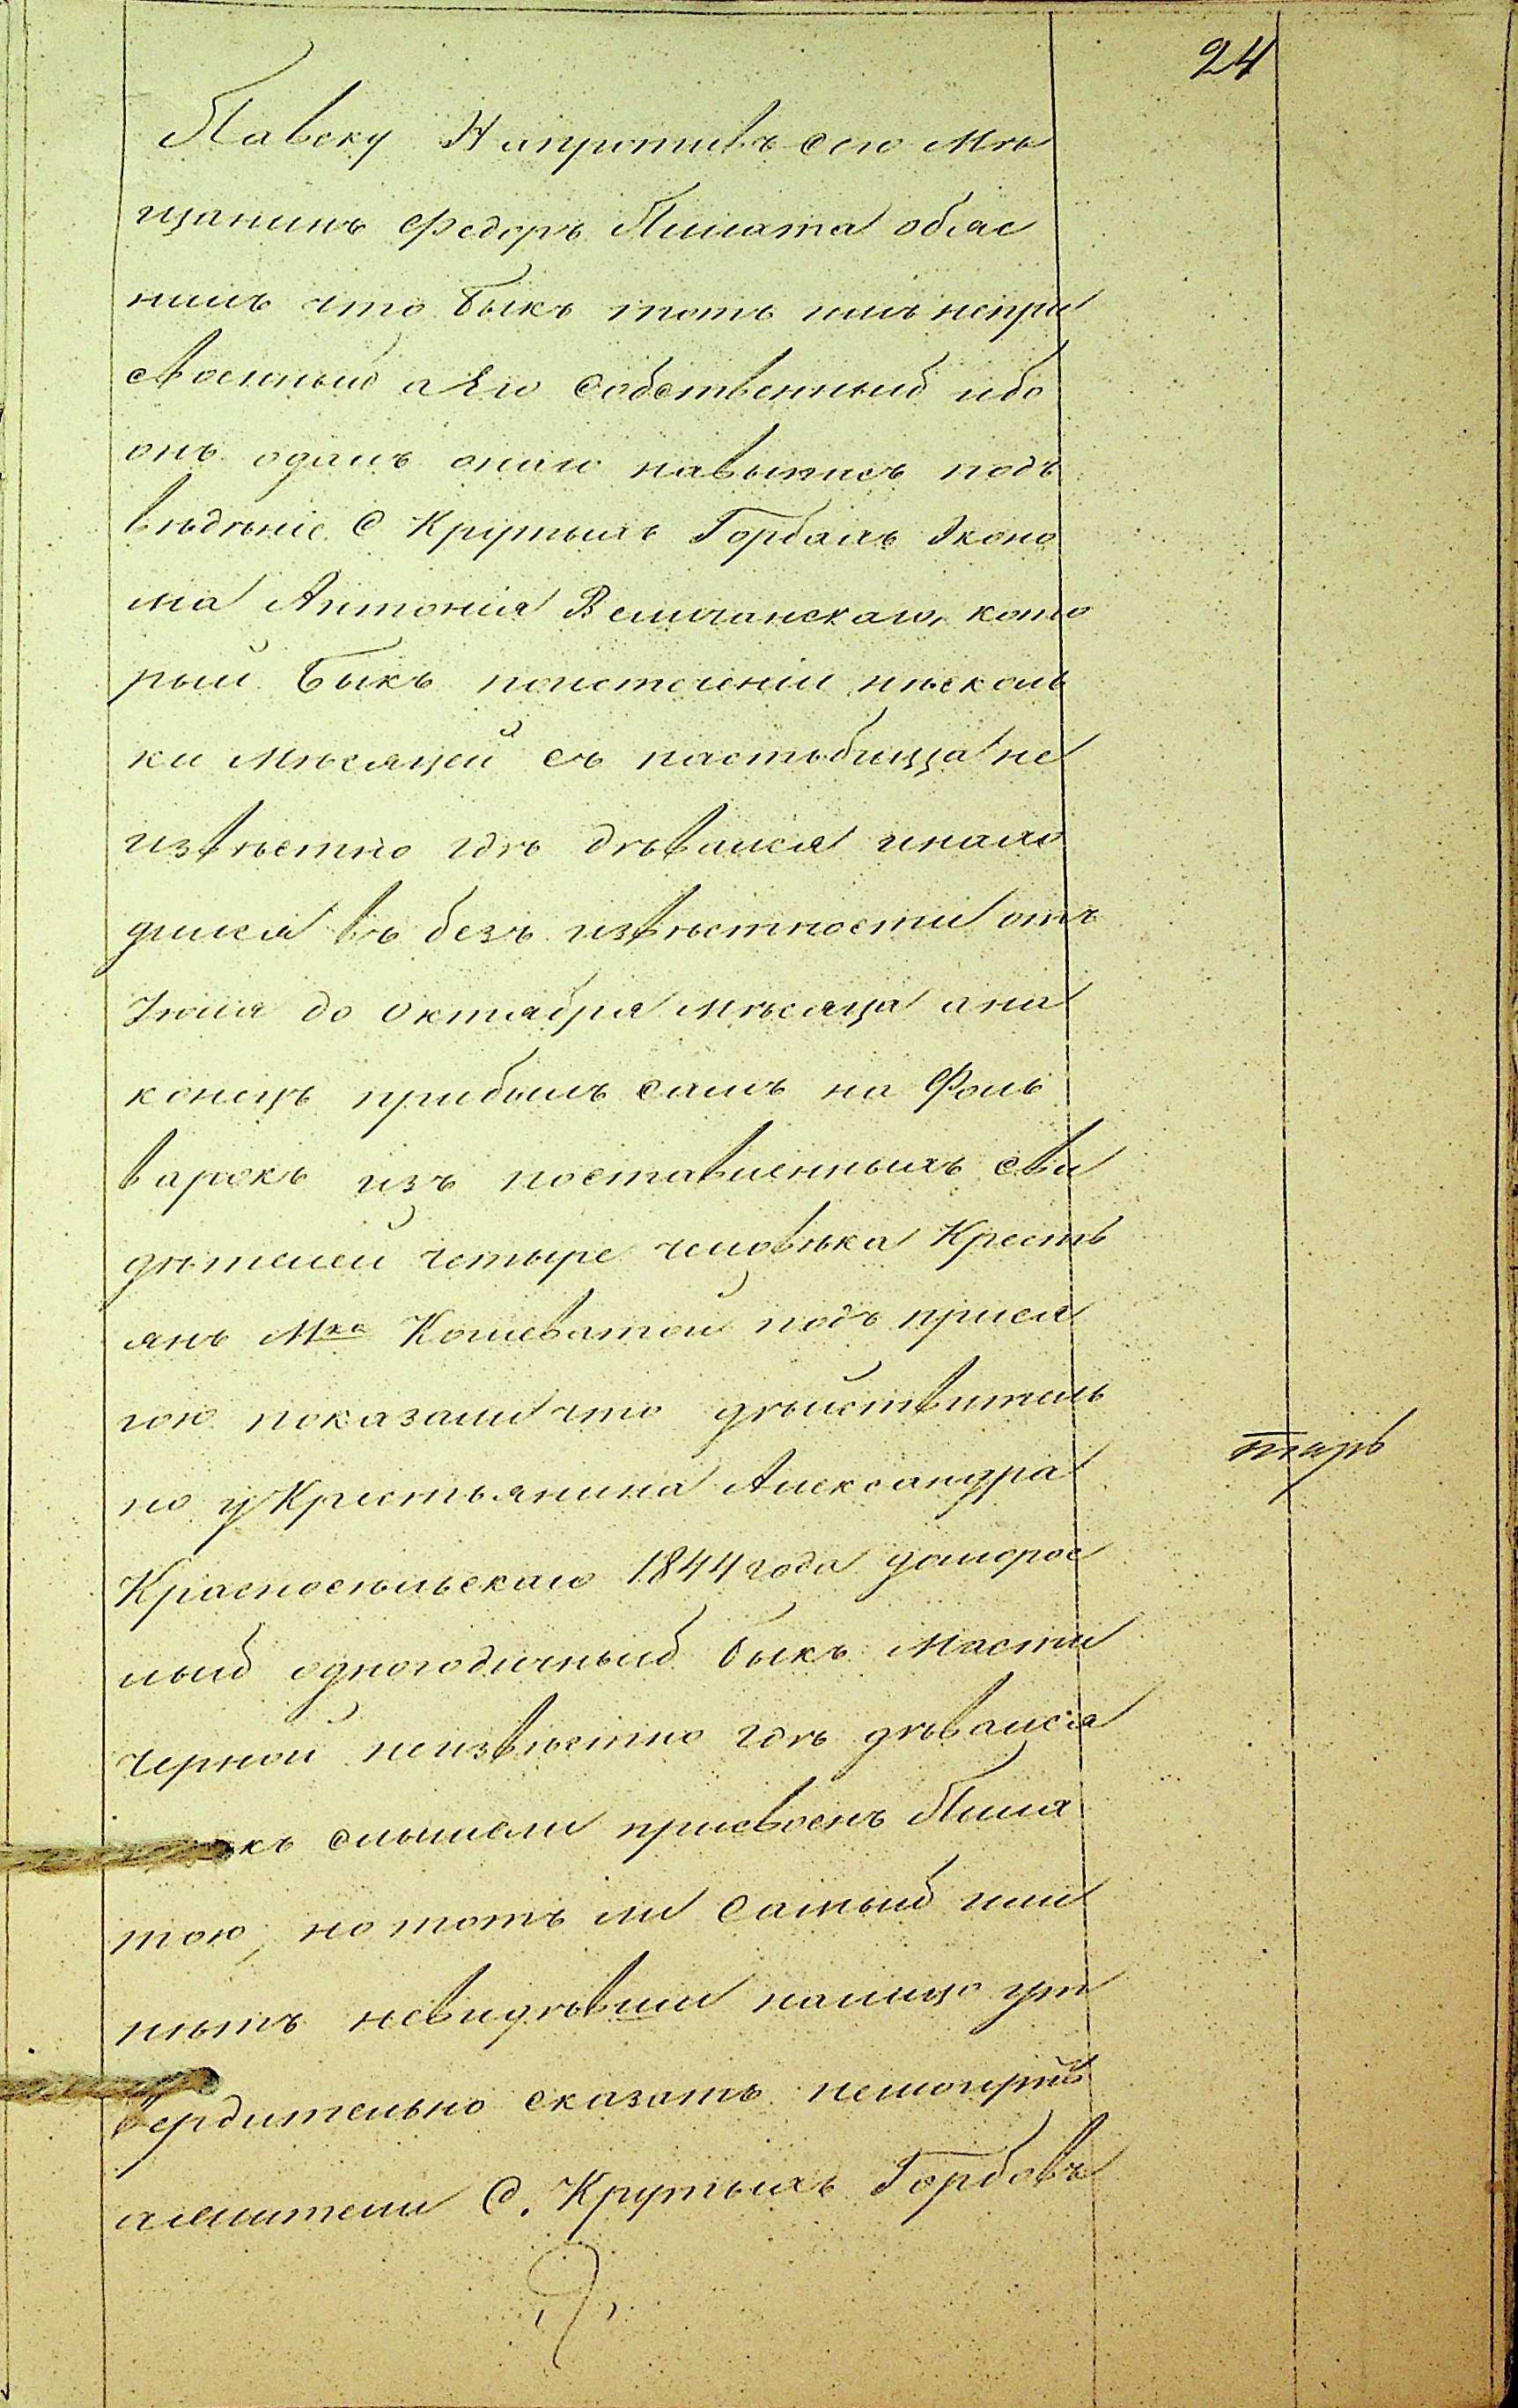 24
Павску Напротивъ сего мѣ
щанинъ Федоръ Пилата обяс
нилъ что быкъ тотъ имъ непри
своенный а Его собственный ибо
онъ одалъ оного навыпасъ подъ
вѣдѣніе С Крутыхъ Горбахъ Эконо
ма Антонія Величанскаго, кото
рый быкъ поистеченіи нѣсколь
ки мѣсяцей съ пастьбища не
извѣстно гдѣ дѣвался инахо
дился въ безъ извѣстности отъ
Іюля до октября мѣсяца ана
конецъ прибылъ самъ на Фоль
варокъ изъ поставленныхъ сви
дѣтелей четыре человѣка Кресть
янъ Мка Кошеватой подъ прися
гою показали что дѣйствитель
но у Крестьянина Александра
Красносельскаго 1844 года доморос
лый одногодичный быкъ масти
черной неизвѣстно гдѣ дѣвался
слышели присвоенъ Пила
тою, но тотъ ли самый или
нѣтъ невидѣвши налицо ут
вердительно сказать немогутъ
а жители С. Крутыхъ Горбовъ